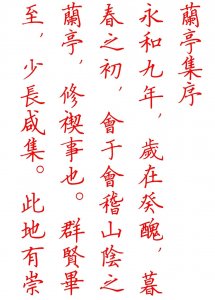 蘭亭集序
永和九年，歲在癸醜，暮
春之初，會于會稽山陰之
蘭亭，修禊事也。群賢畢
至，少長咸集。此地有崇